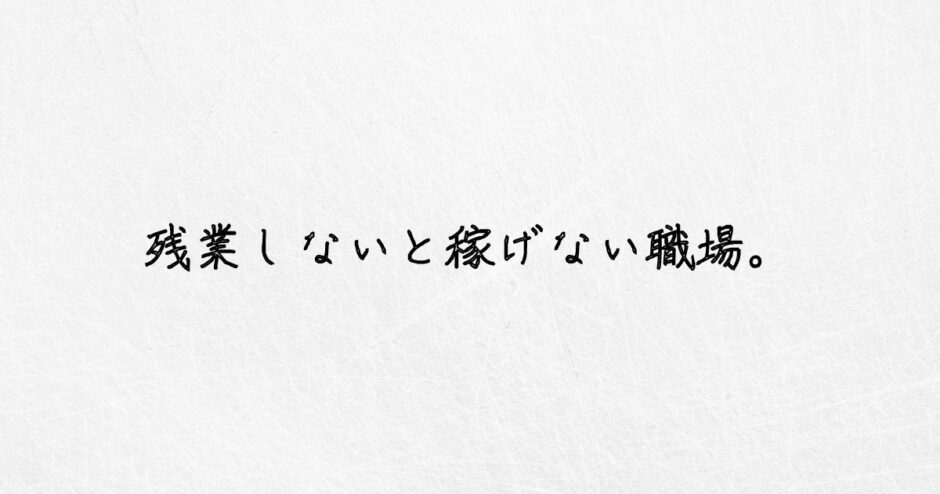 残業しないと稼げない職場。